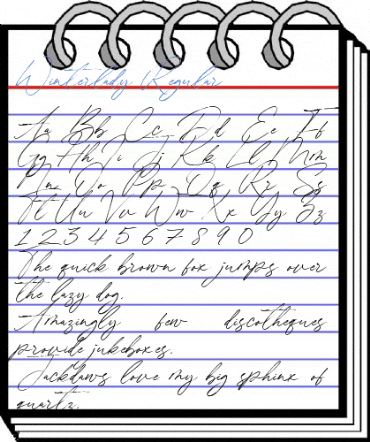 Winterlady Regular
Aa Bb Cc Dd Ee Ff
Gg Hh Ii Jj Kk Ll Mm
Nn Oo Pp Qq Rr Ss
Tt Uu Vv Ww Xx Yy Zz
1 2 3 4 5 6 7 8 9 0
The quick brown fox jumps over
the lazy dog.
Amazingly few discotheques
provide jukeboxes.
Jackdaws love my big sphinx of
quartz.